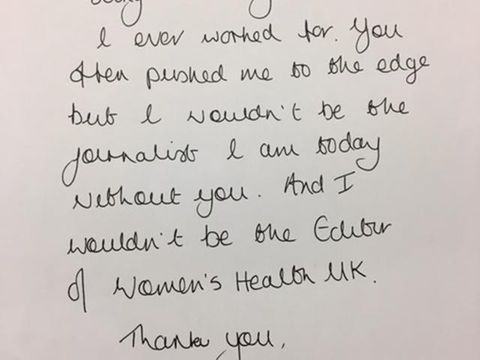 being
I ever worked for. You
often pushed me to the edge
but I wouldn't be the
journalist I am today
without you. And I
wouldn't be the Editor
of Women's Health UK.
Thank you,